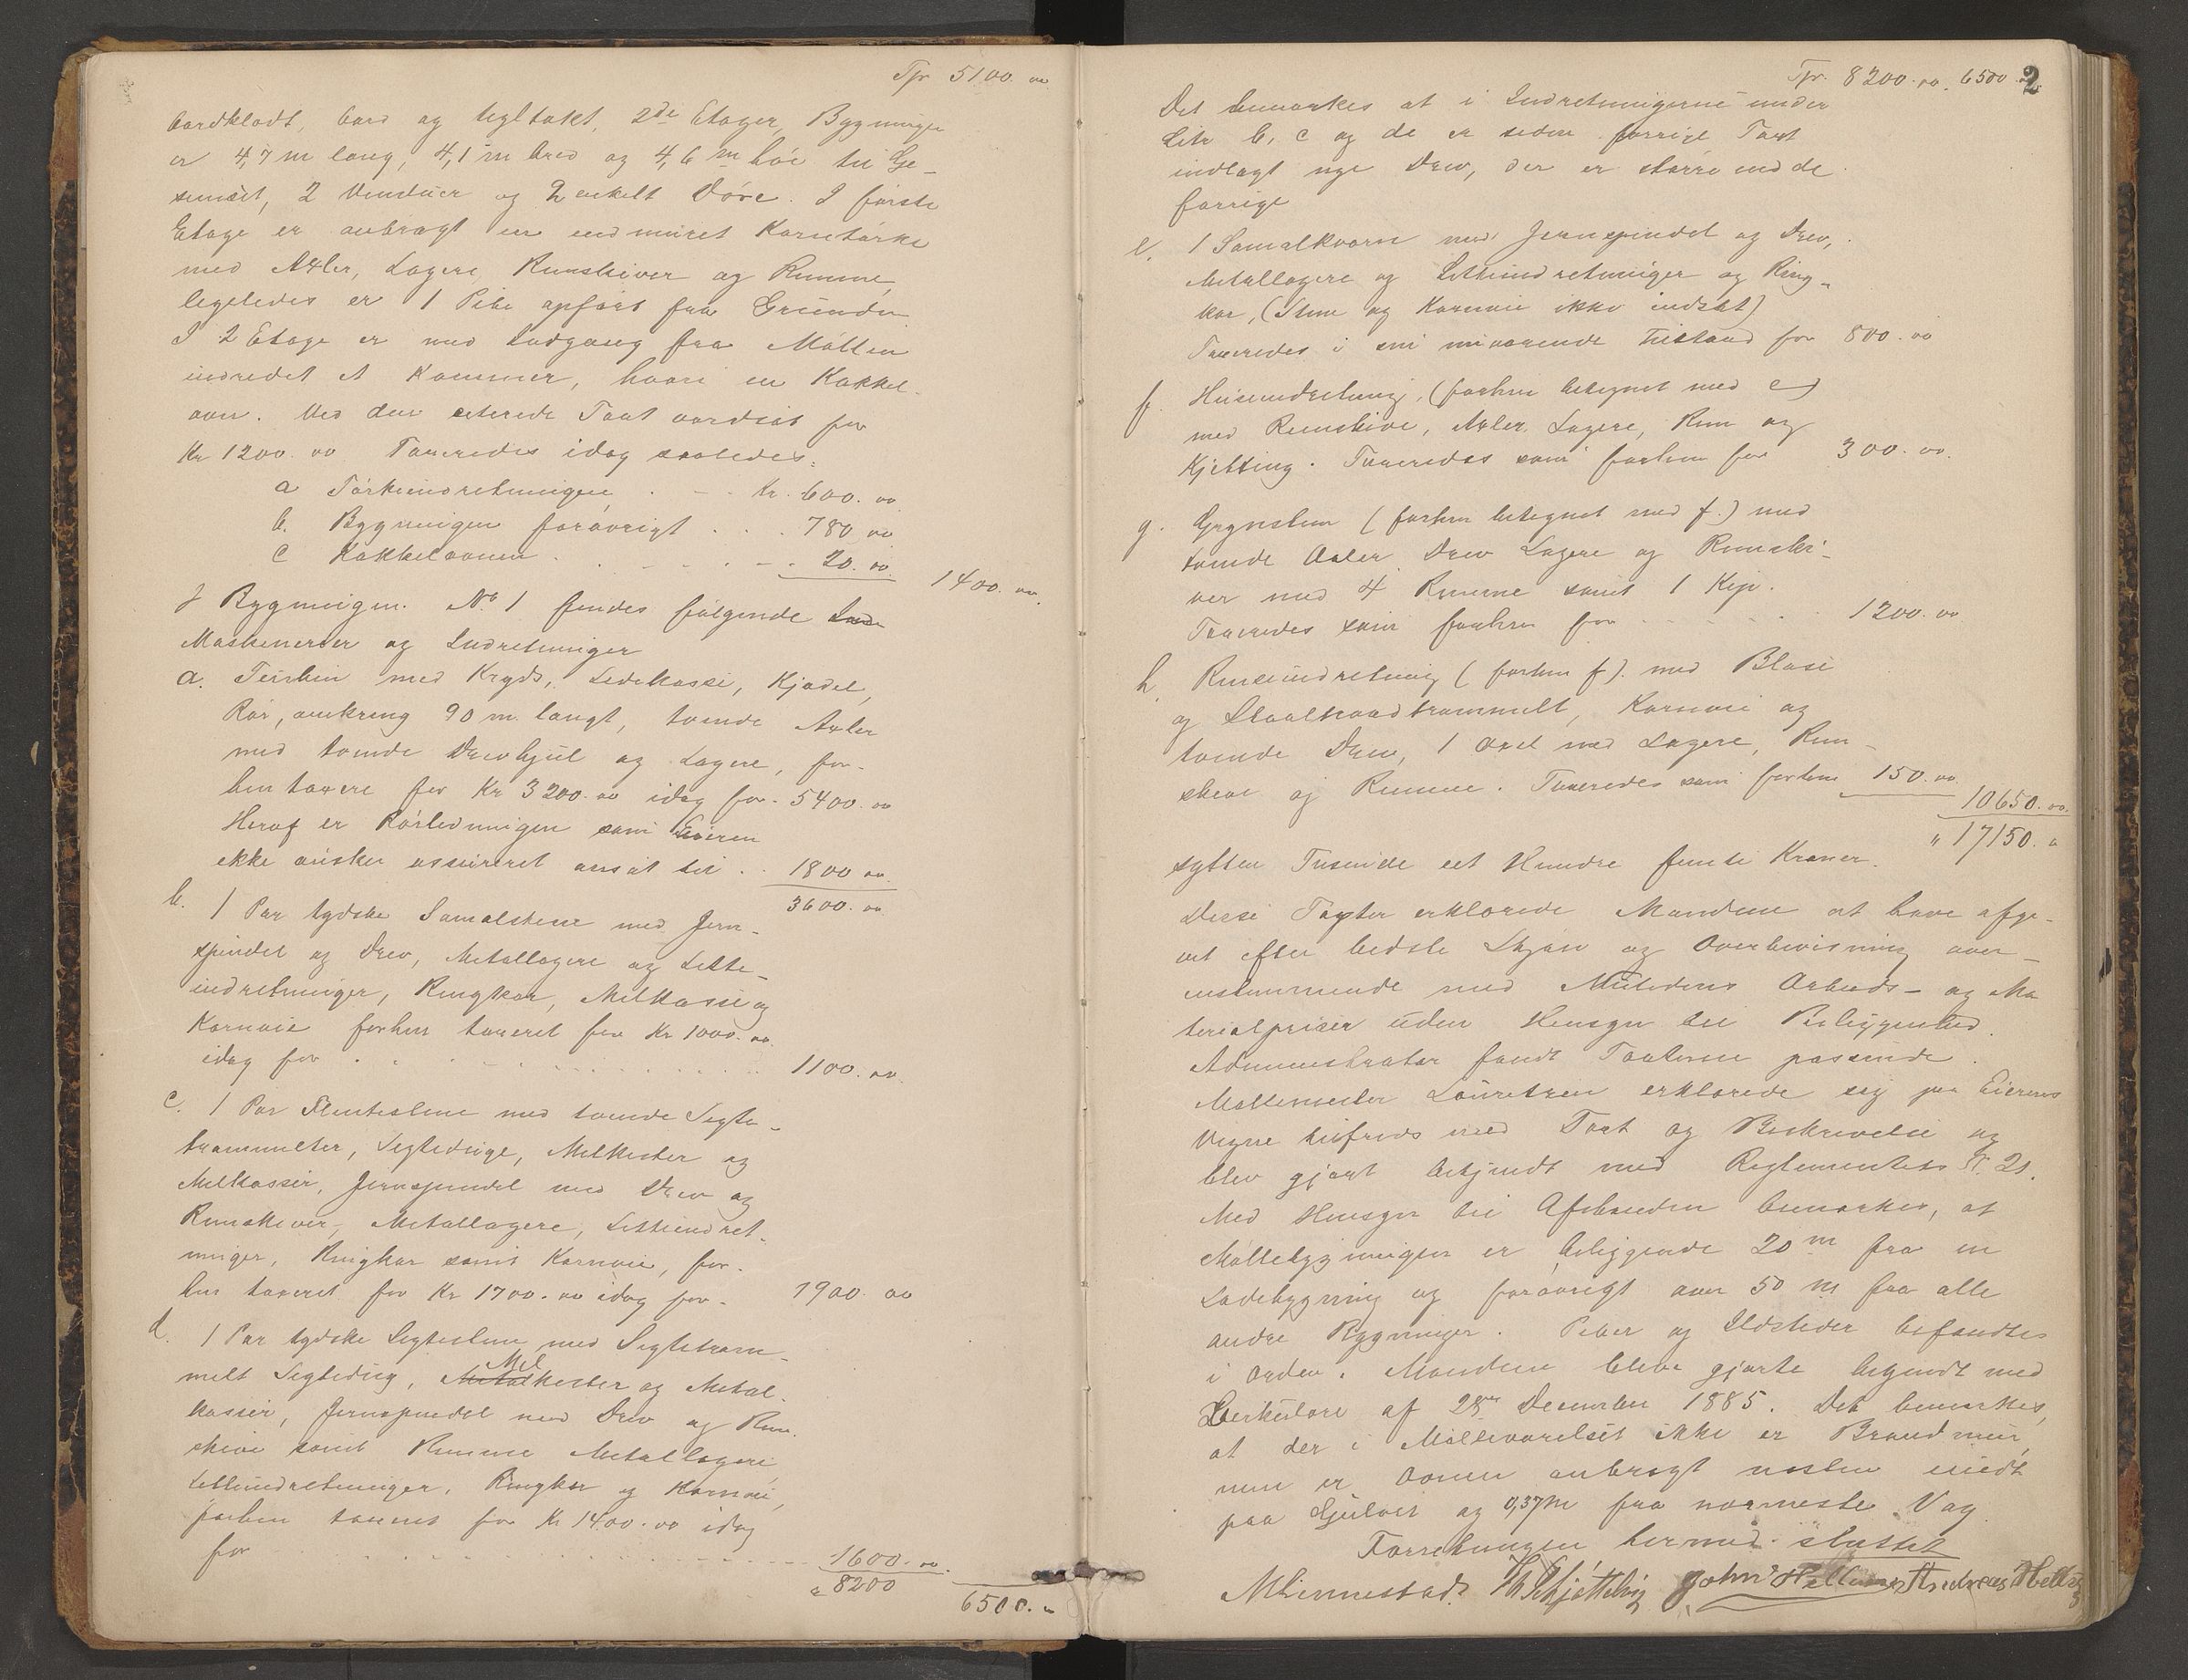 Tpr 5100. oo
bordklædt, bord og tegltækt, 2de Etager, Bygningen
er 4,7 m lang, 4,1 m bred og 4,6 m høi til Ge-
simset, 2 Vinduer og 2 enkelt Døre. I første
Etage er anbragt en indmuret Korntørke
med Axler, Lagere, Remskiver og Remme,
ligeledes er 1 Pibe opført fra Grunden
I 2 Etage er med Indgang fra Møllen
indredet et Kammer, hvori en Kakkel-
ovn. Ved den citerede Taxt værdsat for
Kr 1200. oo Taxeredes idag saaledes:
a Tørkeindretningen . - . Kr. 600. oo
b. Bygningen forøvrigt . . . 780 oo
c Kakkelovnen . . - . - . 20. oo
1400. oo.
I Bygningen No 1 findes følgende
Maskinerier og Indretninger
a. Turbin med Kryds, Ledekasse, Kjædel,
Rør, omkring 90 m. langt, tvende Axler
med tvende Drevhjul og Lagere, for-
hen taxere for Kr 3200. oo idag for. 5400. oo
Heraf er Rørledningen som Eieren
ikke ønsker assureret ansat til . . 1800 oo.
3600. oo
b. 1 Par tydske Samalstene med Jern-
spindel og Drev, Metallagere og Lette-
indretninger, Ringkar, Melkasse og
Kornøie forhen taxeret for Kr 1000. oo.
idag for . . . . . . . . 1100. oo.
c. 1 Par Flintestene med tvende Sigte-
trommelter, Sigteduge, Melkister og
Melkasser, Jernspindel med Drev og
Remskiver, Metallagere, Letteindret-
ninger, Ringkar samt Kornøie, for-
hen taxeret for Kr 1700. oo idag for. 1900 oo
d. 1 Par tydske Sigtestene med Sigtetrom-
melt Sigtedug, Metal Melkister og Metal-
kasser, Jernspindel med Drev og Rem-
skive samt Remme Metallagere,
Letteindretninger, Ringkar og Kornøie,
forhen taxeret for Kr 1400. oo idag
for . . . . . . . . 1600. oo.
" 8200
6500. "
Tpr. 8200. oo. 6500 2
Det bemærkes at i Indretningerne under
Litr b, c og de er siden forrige Taxt
indlagt nye Drev, der er større end de
forrige
e. 1 Samalkværn med Jernspindel og Drev,
Metallagere og Letteindretninger og Ring-
kar, (Stene og Kornøie ikke indsat)
Taxeredes i sin nuværende Tilstand for 800. oo
f. Heiseindretning, (forhen betegnet med e)
med Remskive, Axler, Lagere, Rem og
Kjetting. Taxeredes som forhen for 300. oo.
g. Grynsten (forhen betegnet med f.) med
tvende Axler Drev Lagere og Remski-
ver med 4 Remme samt 1 Kip.
Taxeredes som forhen for . . . . . 1200. oo
h. Renseindretning (forhen f). med Blæse
og Staaltraadtrommelt, Kornøie og
tvende Drev, 1 Axel med Lagere, Rem-
skive og Remme. Taxeredes som forhen 150. oo
10650. oo.
" 17150. "
sytten Tusinde eet Hundre femti Kroner.
Disse Taxter erklærede Mændene at have afgi-
vet efter bedste Skjøn og Overbevisning over-
ensstemmende med Nutidens Arbeids- og Ma
terialpriser uden Hensyn til Beliggenhed.
Administrator fandt Taxterne passende.
Møllemester Lauretzen erklærede sig paa Eierens
Vegne tilfreds med Taxt og Beskrivelse og
blev gjort bekjendt med Reglementets § 21.
Med Hensyn til Afstanden bemærkes, at
Møllebygningen er beliggende 20 m fra en
Ladebygning og forøvrigt over 50 m fra alle
andre Bygninger. Piber og Ildsteder befandtes
i Orden. Mændene bleve gjorte bekjendt med
Cirkulære af 28de December 1885. Det bemærkes,
at der iØlleværelset ikke er Brandmur,
men er Ovnen anbragt næsten midt
paa Gulvet og 0,37 m fra nærmeste Væg.
Forretningen hermed sluttet
MLinnestad. John Hellum Andreas